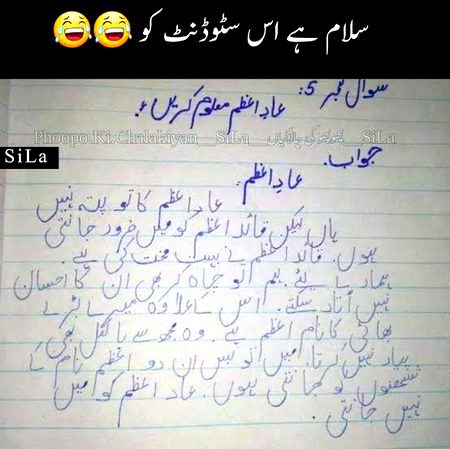 سلام ہے اس سٹوڈنٹ کو 😂😂
سوال نمبر 5:
عاد اعظم معلوم کریں؟
Phoopo Ki Chalakiyan SiLa پھوپھو کی چالاکیاں SiLa
SiLa
جواب.
عاد اعظم:
عاد اعظم کا تو پتہ نہیں
ہاں لیکن قائد اعظم کو میں ضرور جانتی
ہوں. قائد اعظم نے بہت محنت کی ہے
ہمارے لئے. ہم انو چاہ کر بھی ان کا احسان
نہیں اُتار سکتے. اس کے علاوہ میرے
بھائی کا نام اعظم ہے. وہ مجھ سے بالکل بھی
پیار نہیں کرتا. میں تو بس ان دو اعظم نام کے
شخصوں کو جانتی ہوں. عاد اعظم کو میں
نہیں جانتی.